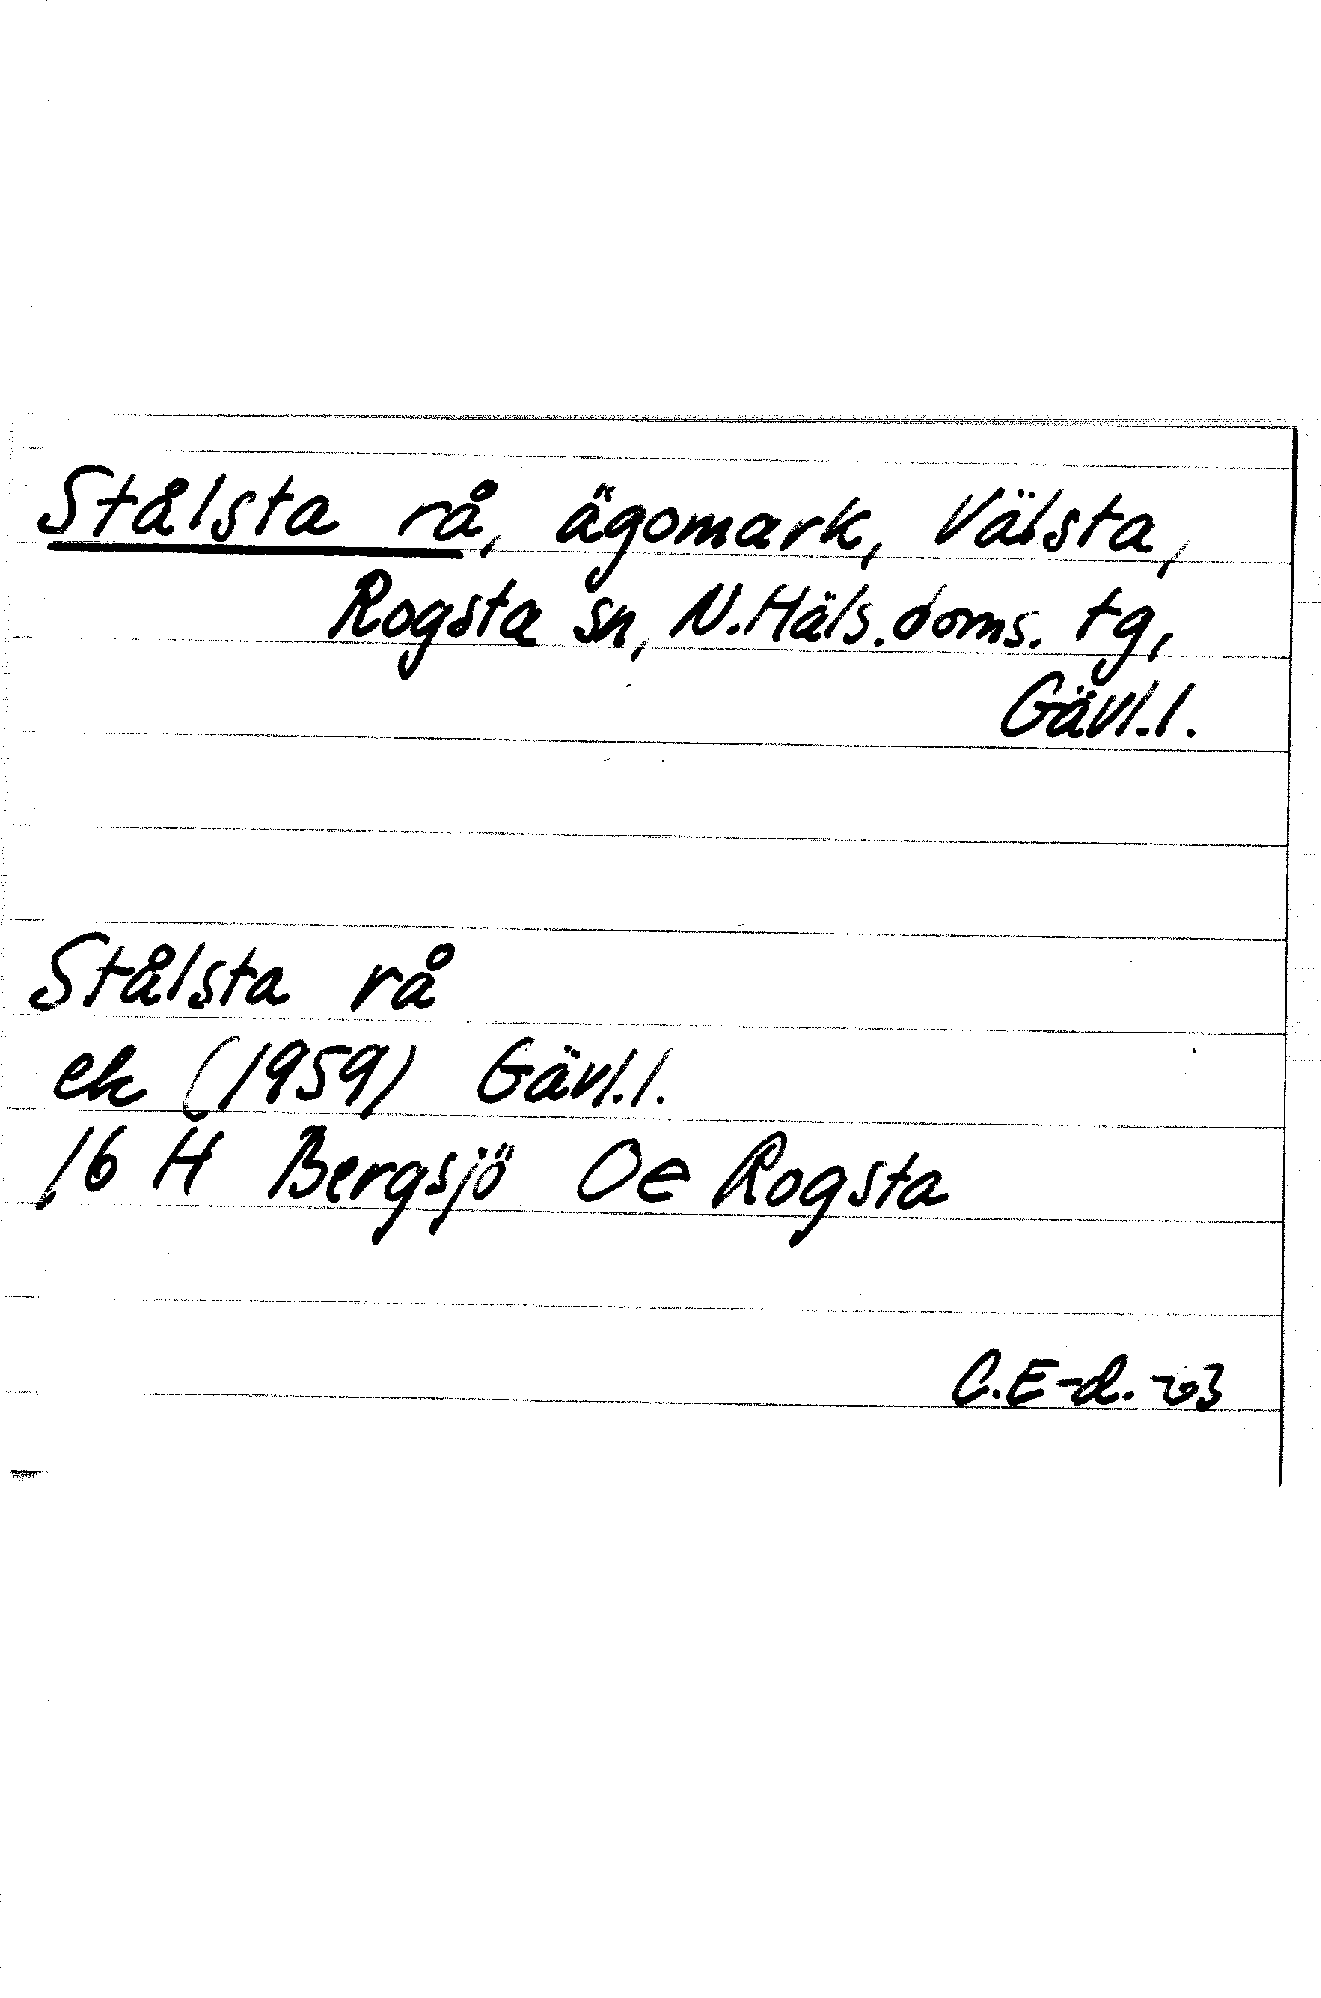 Stålsta rå, ägomark, Välsta,
Rogsta sn, N.Häls.doms. tg,
Gävl.l.
Stålsta rå
ek (1959) Gävl.l.
16 H Bergsjö Oe Rogsta
C.E-d. -63